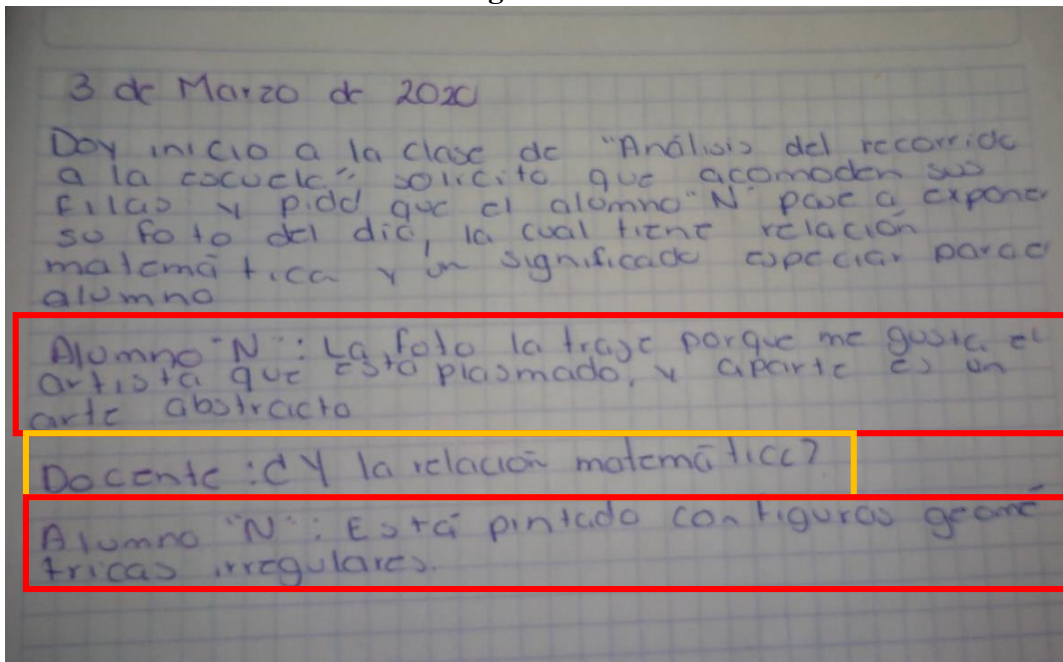 3 de Marzo de 2020
Doy inicio a la clase de "Análisis del recorrido
a la escuela" solicito que acomoden sus
filas y pido que el alumno "N" pase a exponer
su foto del día, la cual tiene relación
matemática y un significado especial para el
alumno
Alumno "N": La foto la traje porque me gusta el
artista que está plasmado, y aparte es un
arte abstracto
Docente: ¿Y la relación matemática?
Alumno "N": Está pintado con figuras geomé
tricas irregulares.